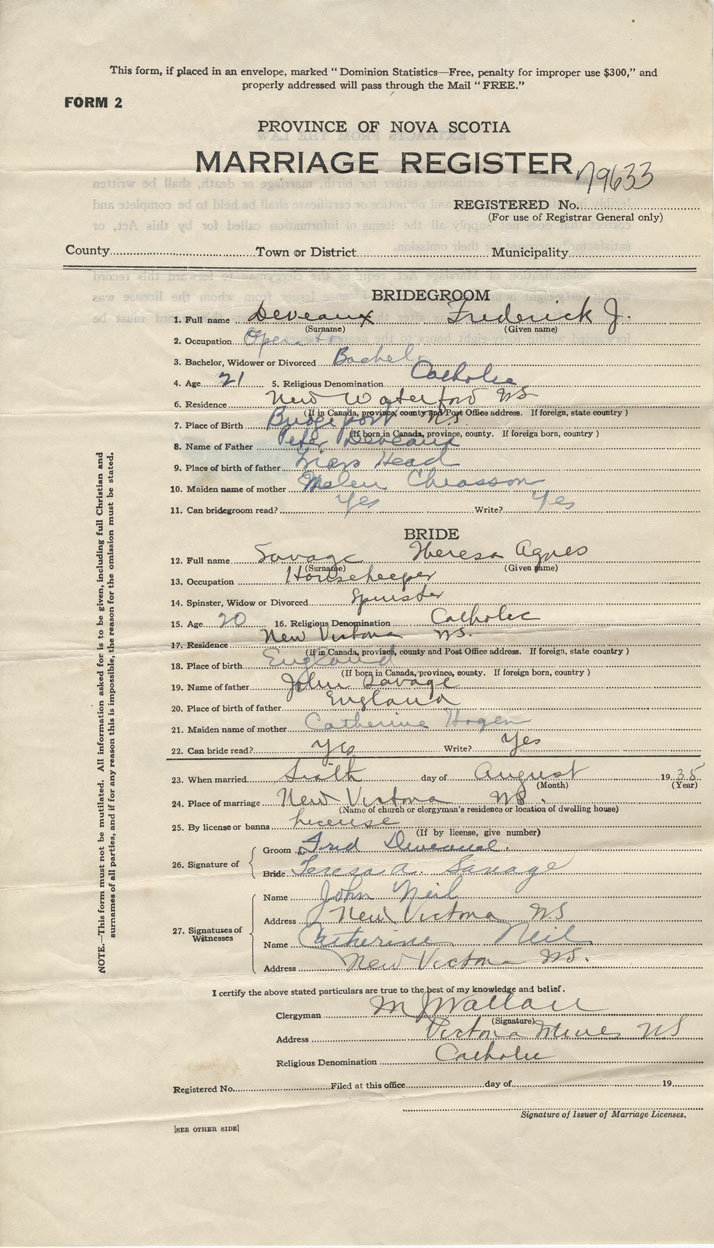 This form, if placed in an envelope, marked "Dominion Statistics—Free, penalty for improper use $300," and
properly addressed will pass through the Mail "FREE."
FORM 2
PROVINCE OF NOVA SCOTIA
MARRIAGE REGISTER
79633
REGISTERED No.
(For use of Registrar General only)
County Town or District Municipality
BRIDEGROOM
1. Full name Deveaux Frederick J.
(Surname) (Given name)
2. Occupation Operator
3. Bachelor, Widower or Divorced Bachelor
4. Age 21 5. Religious Denomination Catholic
6. Residence New Waterford NS
(If in Canada, province, county and Post Office address. If foreign, state country)
7. Place of Birth Bridgeport NS
(If born in Canada, province, county. If foreign born, country)
8. Name of Father Peter Deveaux
9. Place of birth of father Head
10. Maiden name of mother Chiasson
11. Can bridegroom read? Yes Write? Yes
BRIDE
12. Full name Savage Theresa Agnes
(Surname) (Given name)
13. Occupation Housekeeper
14. Spinster, Widow or Divorced Spinster
15. Age 20 16. Religious Denomination Catholic
17. Residence New Victoria NS.
(If in Canada, province, county and Post Office address. If foreign, state country)
18. Place of birth England
(If born in Canada, province, county. If foreign born, country)
19. Name of father John Savage
20. Place of birth of father England
21. Maiden name of mother Catherine Hogen
22. Can bride read? Yes Write? Yes
23. When married Sixth day of August 1935
(Month) (Year)
24. Place of marriage New Victoria NS.
(Name of church or clergyman's residence or location of dwelling house)
25. By license or banns license
(If by license, give number)
26. Signature of
Groom Fred Deveaux.
Bride Teresa A. Savage
27. Signatures of Witnesses
Name John Neil
Address New Victoria NS
Name Catherine Neil
Address New Victoria NS.
I certify the above stated particulars are true to the best of my knowledge and belief.
Clergyman M J Wallace
(Signature)
Address Victoria Mines NS
Religious Denomination Catholic
Registered No. Filed at this office day of 19
Signature of Issuer of Marriage Licenses.
[SEE OTHER SIDE]
NOTE.—This form must not be mutilated. All information asked for is to be given, including full Christian and
surnames of all parties, and if for any reason this is impossible, the reason for the omission must be stated.